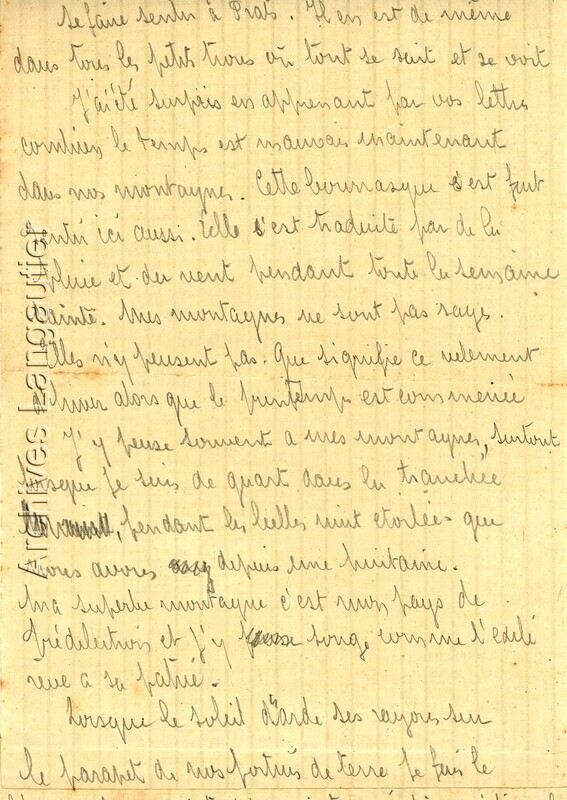 se faire sentir à Prats. Il en est de même
dans tous les petits trous où tout se sait et se voit
J'ai été surpris en apprenant par vos lettres
combien le temps est mauvais maintenant
dans nos montagnes. Cette bourrasque s'est fait
sentir ici aussi. Elle s'est traduite par de la
pluie et du vent pendant toute la semaine
sainte. Mes montagnes ne sont pas sages.
Elles n'y pensent pas. Que signifie ce vêtement
d'hiver alors que le printemps est commencé
J'y pense souvent a mes montagnes, surtout
lorsque je suis de quart dans la tranchée
pendant les belles nuit etoilées que
nous avons depuis une huitaine.
Ma superbe montagne c'est mon pays de
prédilection et j'y songe comme l'exilé
reve a sa patrie.
Lorsque le soleil darde ses rayons sur
le parapet de nos fortins de terre je fais le
Archives Langautier